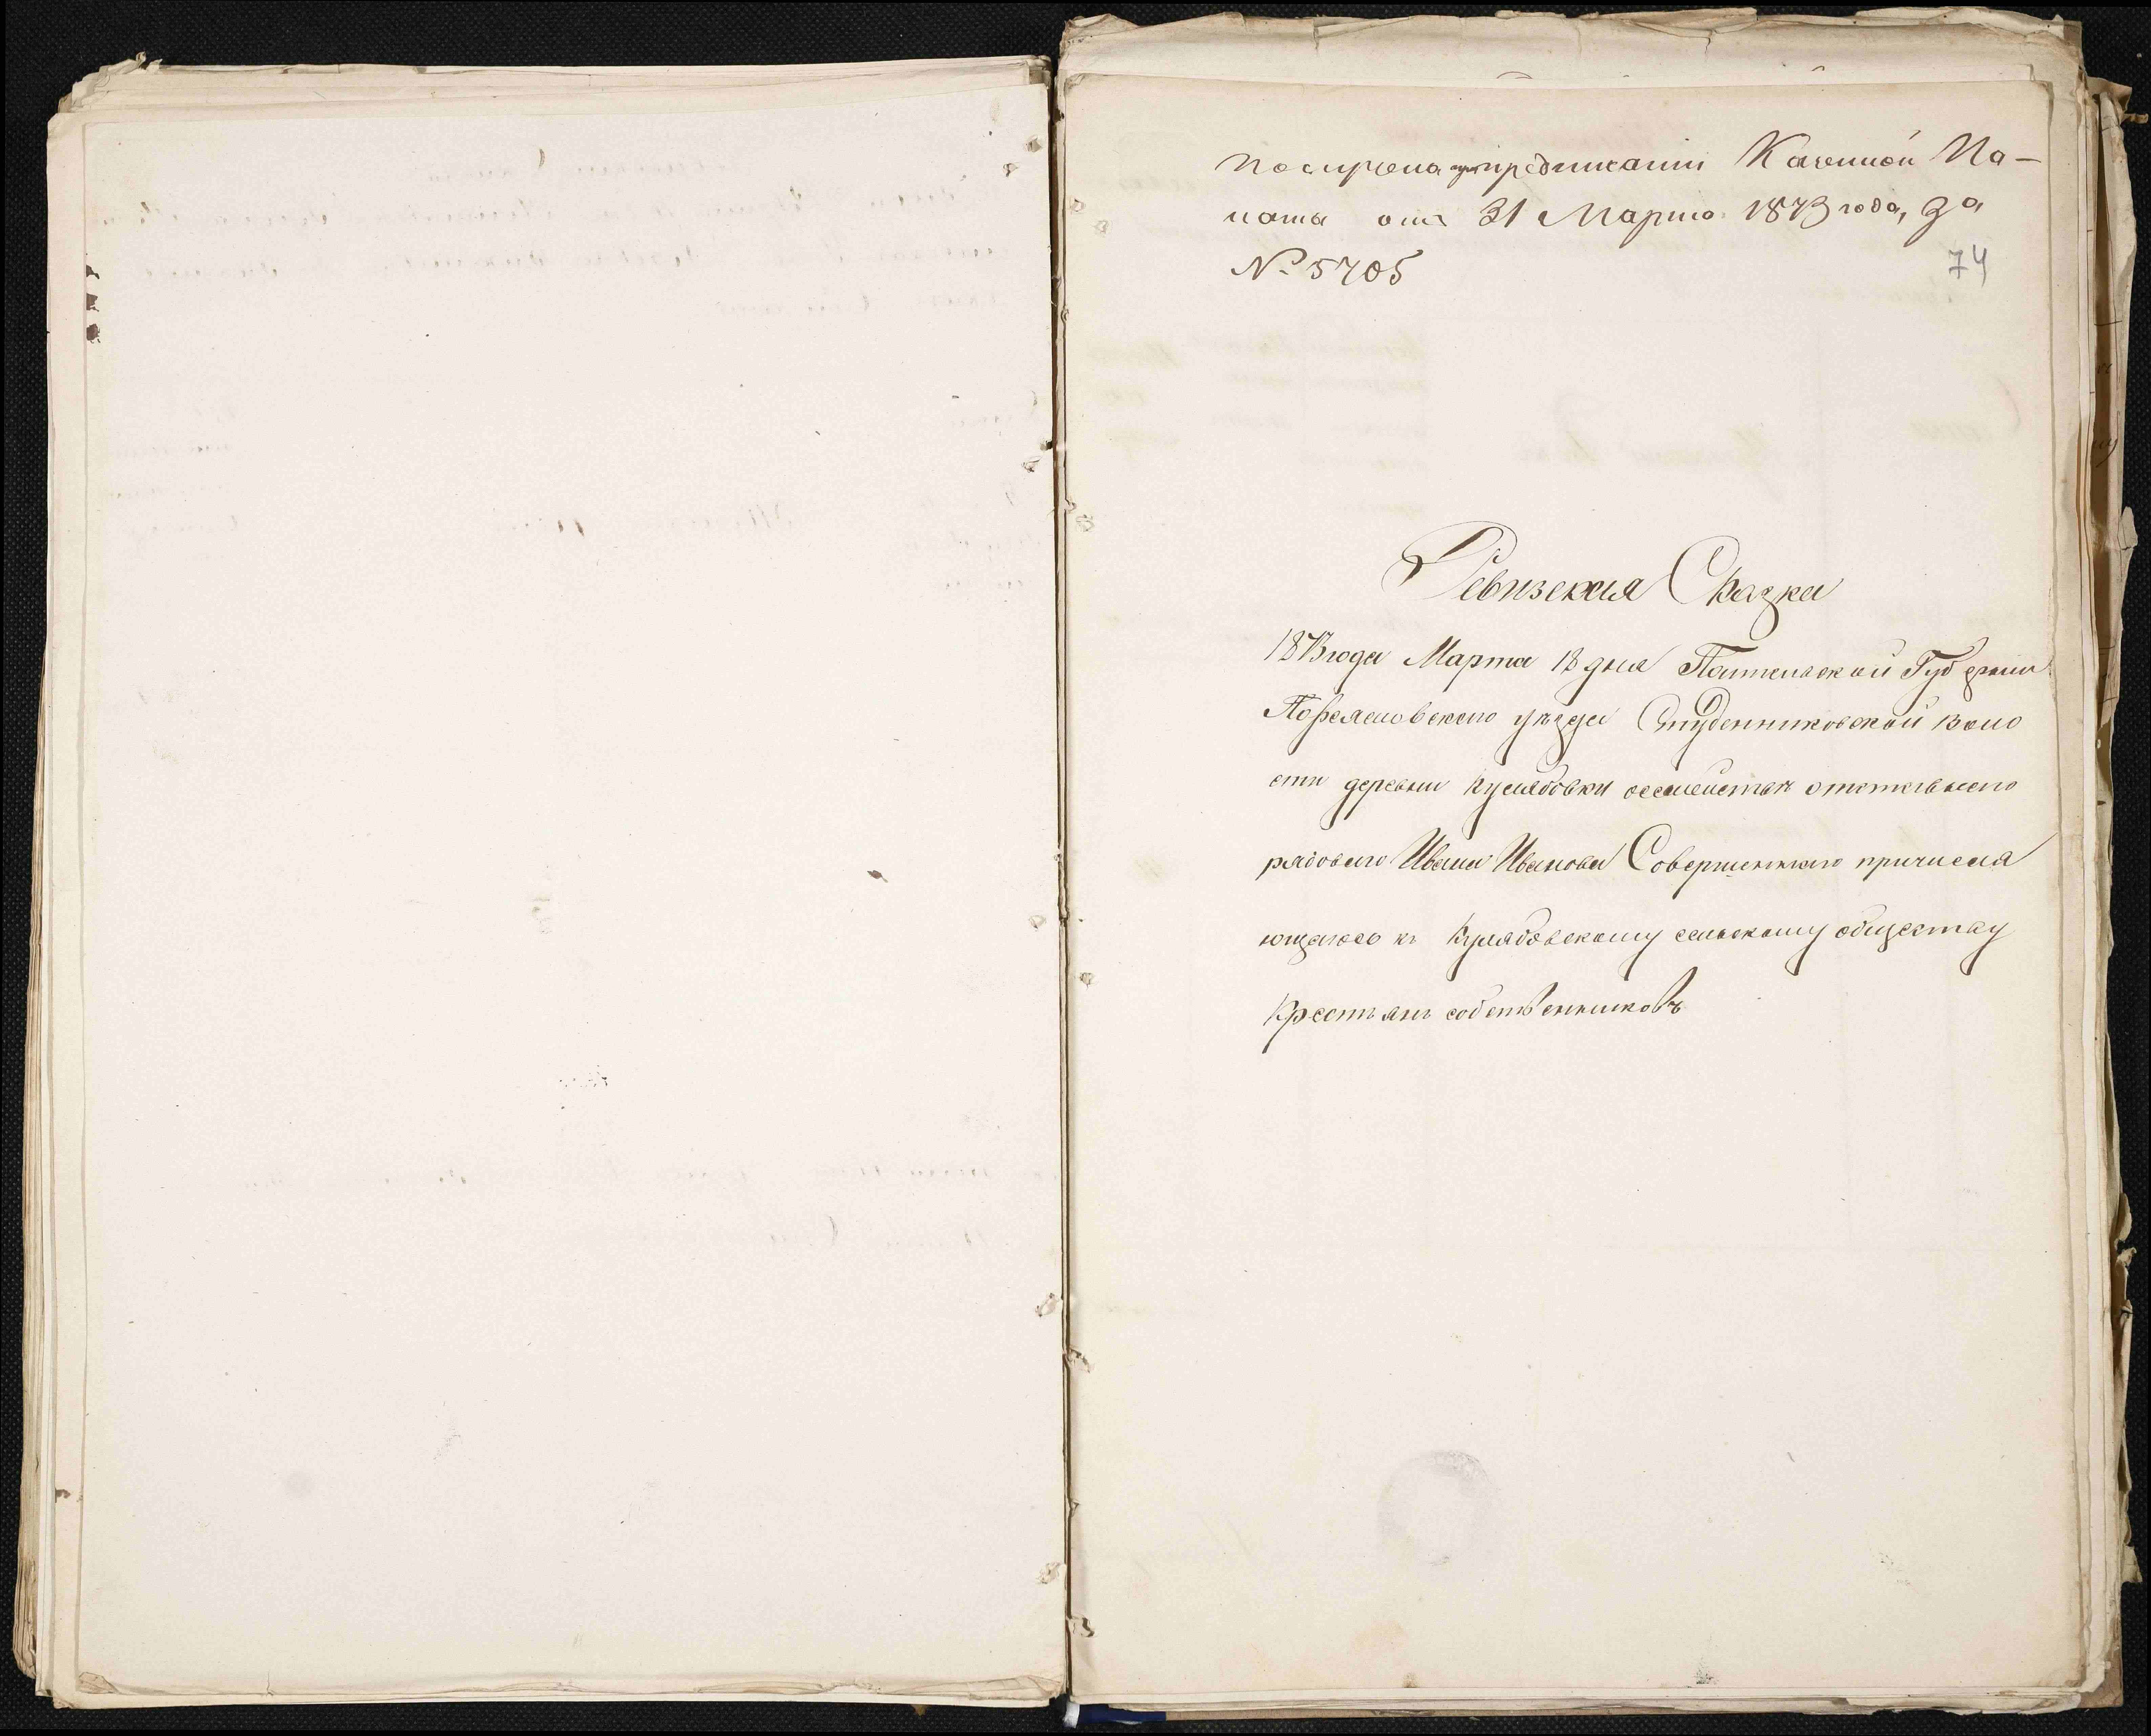 Получена при предписании Казенной Па-
латы отъ 31 Марта 1873 года, за
№ 5705
74
Ревизская Сказка
1873 года Марта 13 дня Полтавской Губернии
уезда Студенниковской воло
сти деревни Кулябовки о семействѣ отставнаго
рядоваго Ивана Иванова причисля
ющагося къ Кулябовскому сельскому обществу
Крестьянъ собственниковъ